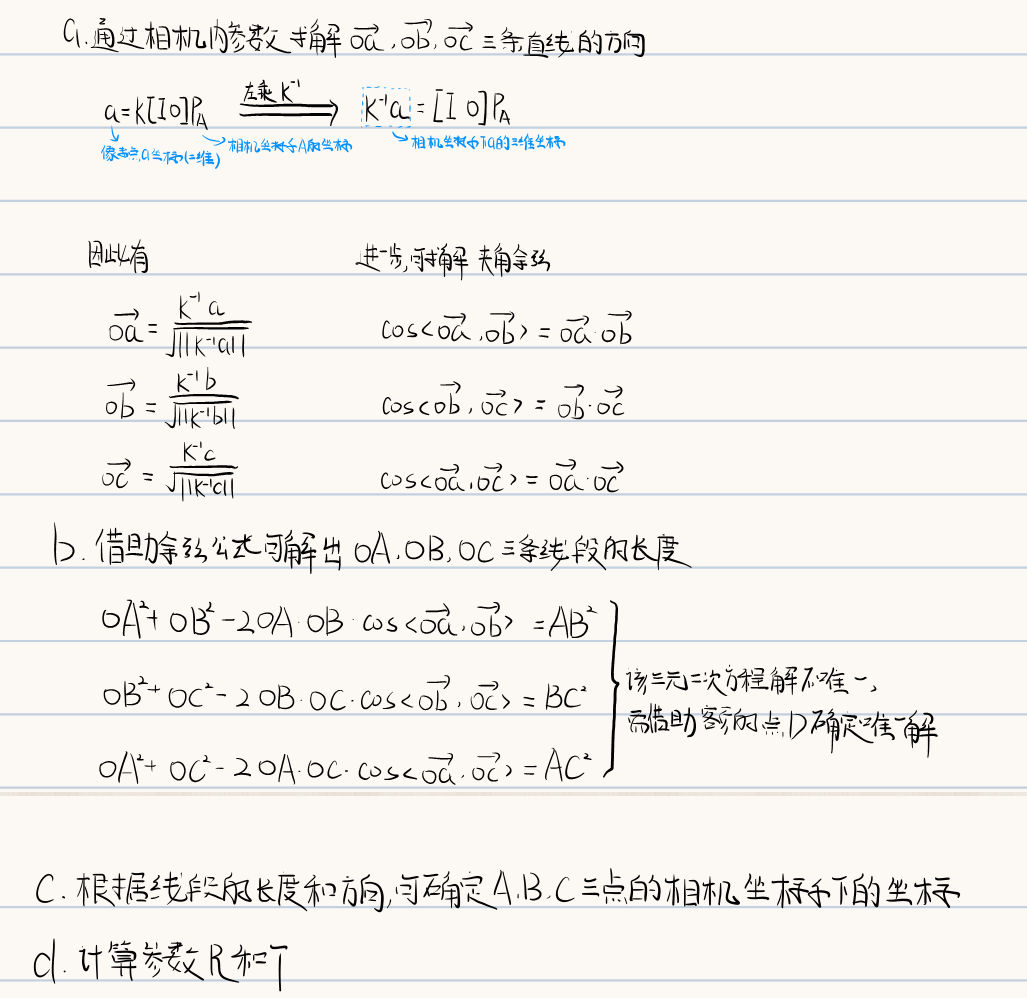 a. 通过相机内参数求解 oa, ob, oc 三条直线的方向
a=K[I 0]P_A 左乘K⁻¹ ⟹ K⁻¹a = [I 0]P_A
像素点a坐标(二维) 相机坐标系A的坐标 相机坐标系下a的三维坐标
因此有 进一步,可求解 夹角余弦
→oa = K⁻¹a / √||K⁻¹a|| cos<→oa, →ob> = →oa · →ob
→ob = K⁻¹b / √||K⁻¹b|| cos<→ob, →oc> = →ob · →oc
→oc = K⁻¹c / √||K⁻¹c|| cos<→oa, →oc> = →oa · →oc
b. 借助余弦公式可解出 OA, OB, OC 三条线段的长度
OA² + OB² - 2OA · OB · cos<→oa, →ob> = AB²
OB² + OC² - 2OB · OC · cos<→ob, →oc> = BC²
OA² + OC² - 2OA · OC · cos<→oa, →oc> = AC²
该三元二次方程解不唯一,
需借助额外的点D确定唯一解
C. 根据线段的长度和方向,可确定A, B, C三点的相机坐标系下的坐标
d. 计算参数R和T